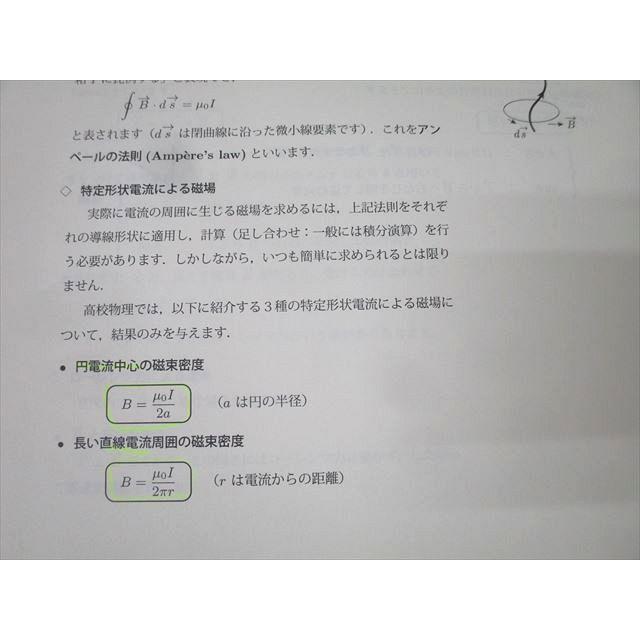 相手に比例する」と表現でき，
∮ B⃗ · d s⃗ = μ₀I
と表されます（d s⃗ は閉曲線に沿った微小線要素です）．これをアン
ペールの法則 (Ampère's law) といいます．
d s⃗
B⃗
◇ 特定形状電流による磁場
実際に電流の周囲に生じる磁場を求めるには，上記法則をそれぞ
れの導線形状に適用し，計算（足し合わせ：一般には積分演算）を行
う必要があります．しかしながら，いつも簡単に求められるとは限り
ません．
高校物理では，以下に紹介する 3 種の特定形状電流による磁場に
ついて，結果のみを与えます．
● 円電流中心の磁束密度
B = μ₀I / 2a （a は円の半径）
● 長い直線電流周囲の磁束密度
B = μ₀I / 2πr （r は電流からの距離）